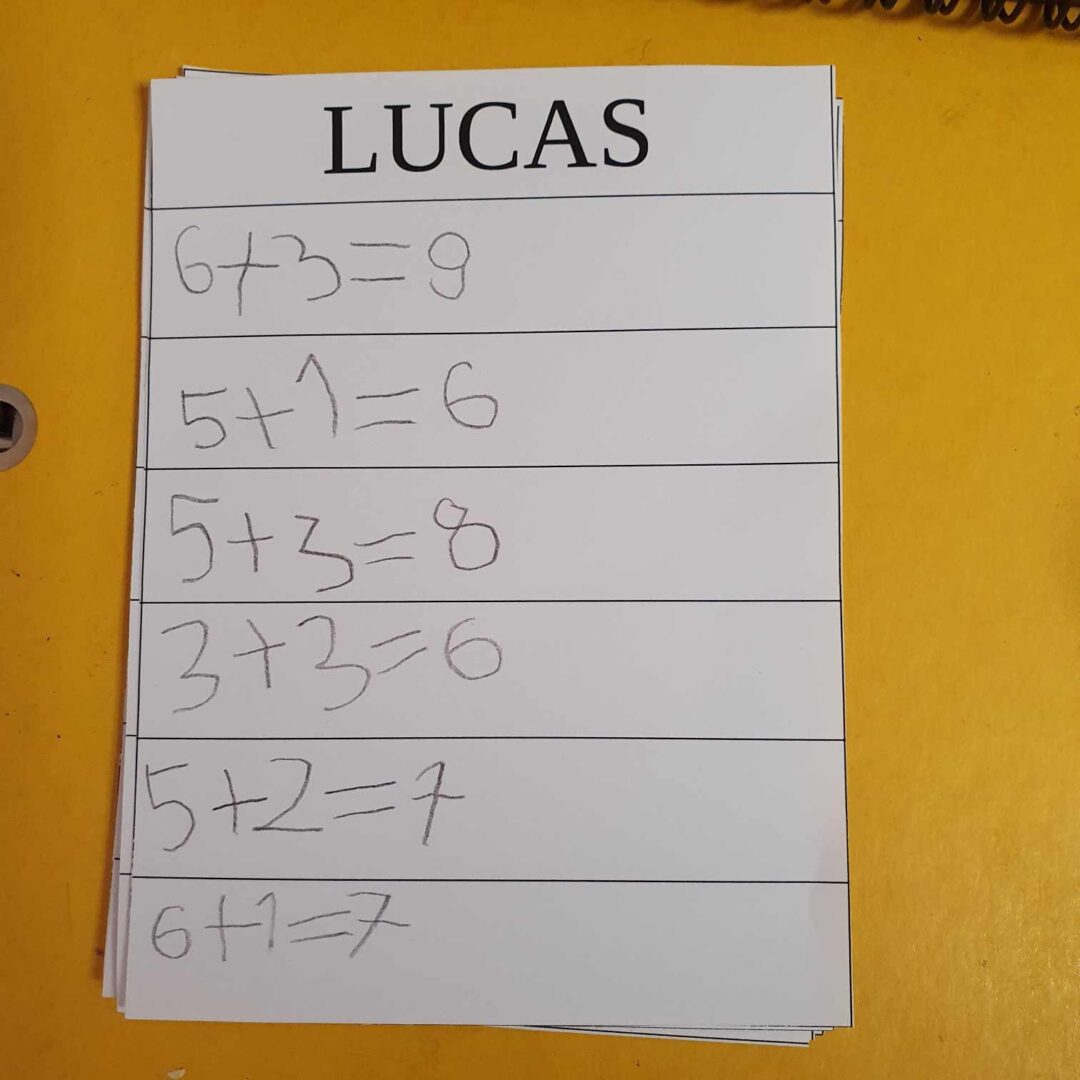 LUCAS
6+3=9
5+1=6
5+3=8
3+3=6
5+2=7
6+1=7